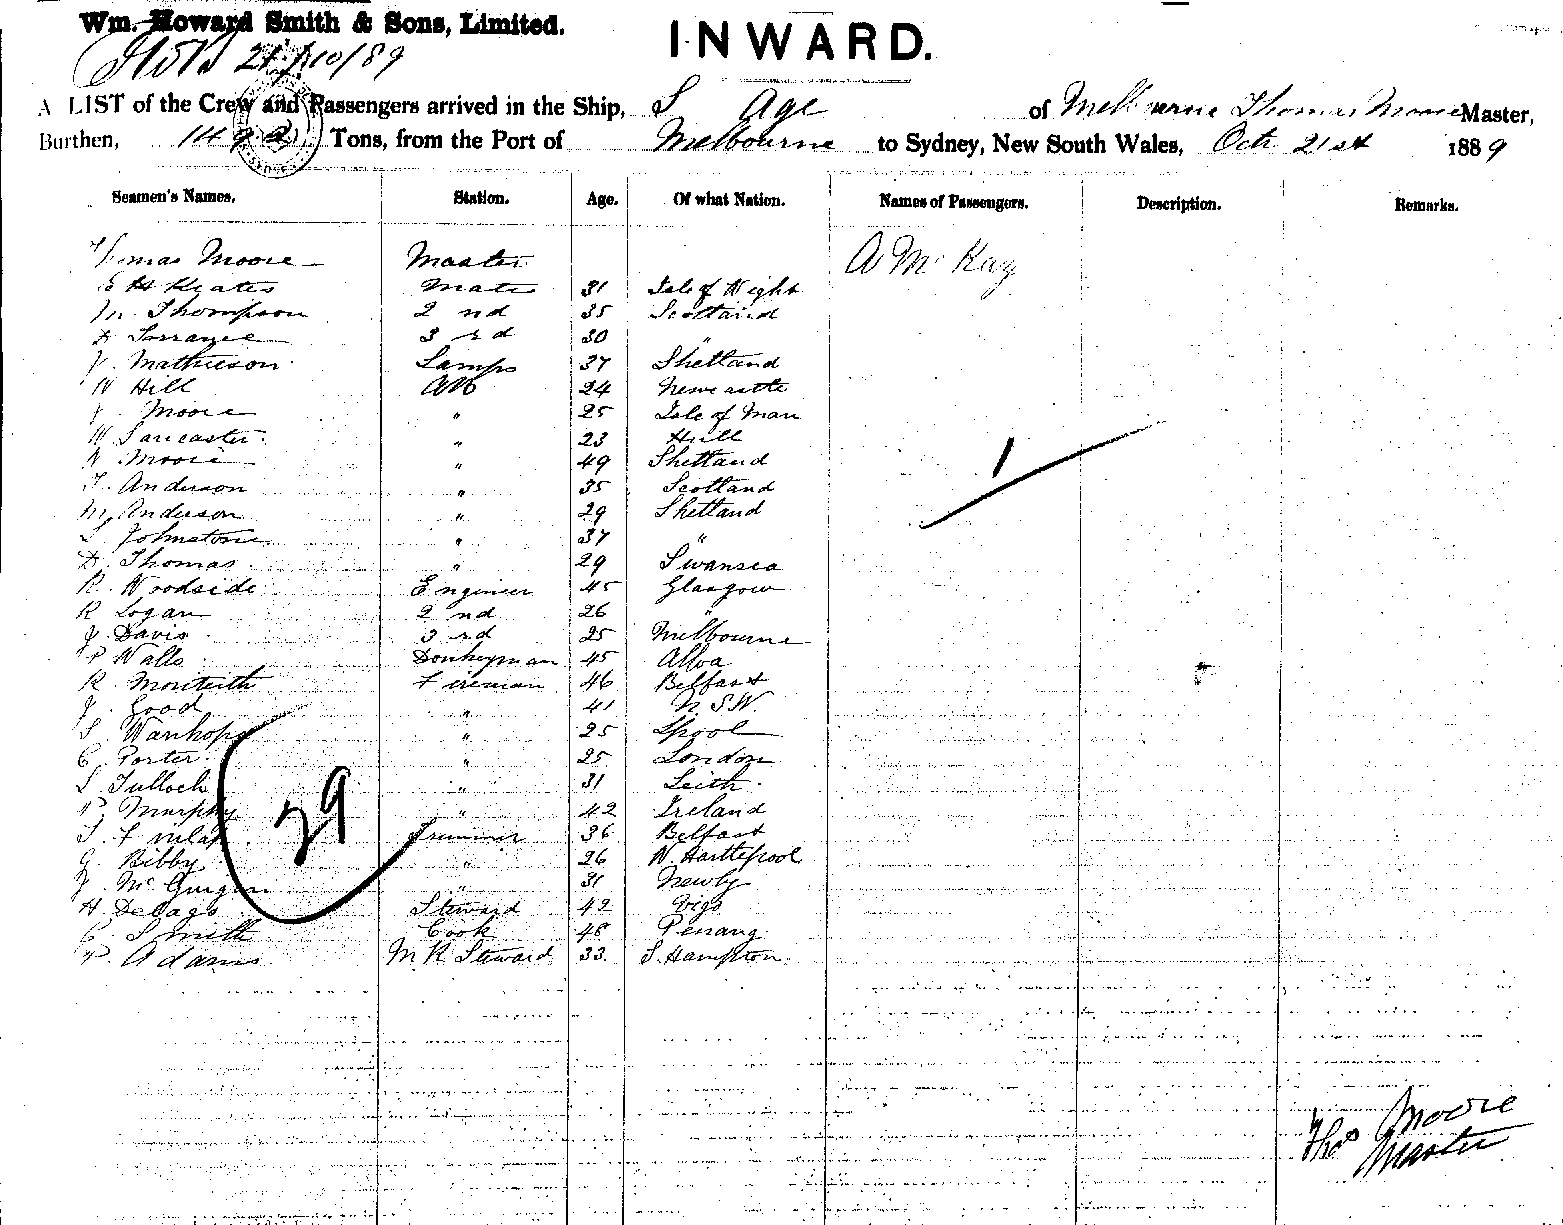 Wm. Howard Smith & Sons, Limited.
21/10/89
INWARD.
A LIST of the Crew and Passengers arrived in the Ship, S Age of Melbourne Thomas Moore Master,
Burthen, Tons, from the Port of Melbourne to Sydney, New South Wales, Oct 21st 1889
Seamen's Names. Station. Age. Of what Nation. Names of Passengers. Description. Remarks.
Thomas Moore Master A McKay
E H Keates Mate 31 Isle of Wight
M. Thompson 2nd 35 Scotland
D Torrance 3rd 30 "
J. Mathieson Lamps 37 Shetland
W Hill AB 24 Newcastle
J. Moore " 25 Isle of Man
W Lancaster " 23 Hull
W Moore " 49 Shetland
T. Anderson " 35 Scotland
M. Anderson " 29 Shetland
L Johnstone " 37 "
D. Thomas " 29 Swansea
R. Woodside Engineer 45 Glasgow
R Logan 2nd 26 "
J. Davis 3rd 25 Melbourne
P Walls Donkeyman 45 Alloa
R Monteith Fireman 46 Belfast
J. Good " 41 N.S.W.
S. Wanhope " 25 Lpool
C. Porter " 25 London
S. Tulloch " 31 Leith
P. Murphy " 42 Ireland
T. Trimmer 36 Belfast
G. Ribby " 26 W. Hartlepool
J. " 31 Newby
H Delago Steward 42 Vigo
C. Smith Cook 48 Penang
P. Adams M.R. Steward 33 S. Hampton
1
29
Thos Moore
Master